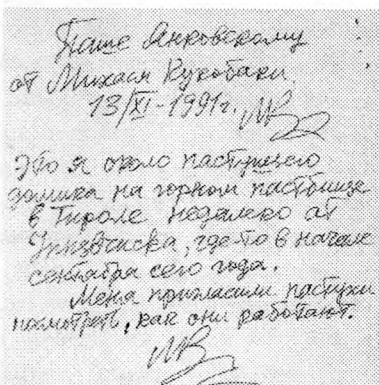 Паше Янковскому
от Михася Кукобаки.
13/XI-1991г. МК
Это я около пастушьего
домика на горном пастбище
в Тироле недалеко от
где-то в начале
сентября сего года.
Меня пригласили пастухи
посмотреть, как они работают.
МК